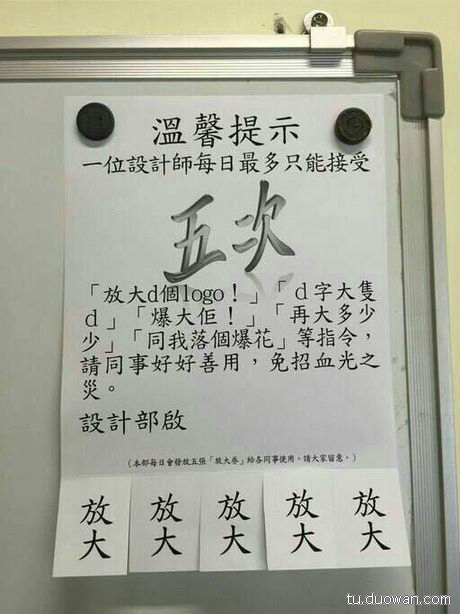 溫馨提示
一位設計師每日最多只能接受
五次
「放大d個logo！」「d字大隻
d」「爆大佢！」「再大多少
少」「同我落個爆花」等指令，
請同事好好善用，免招血光之
災。
設計部啟
（本部每日會發放五張「放大券」給各同事使用。請大家留意。）
放大 放大 放大 放大 放大
tu.duowan.com